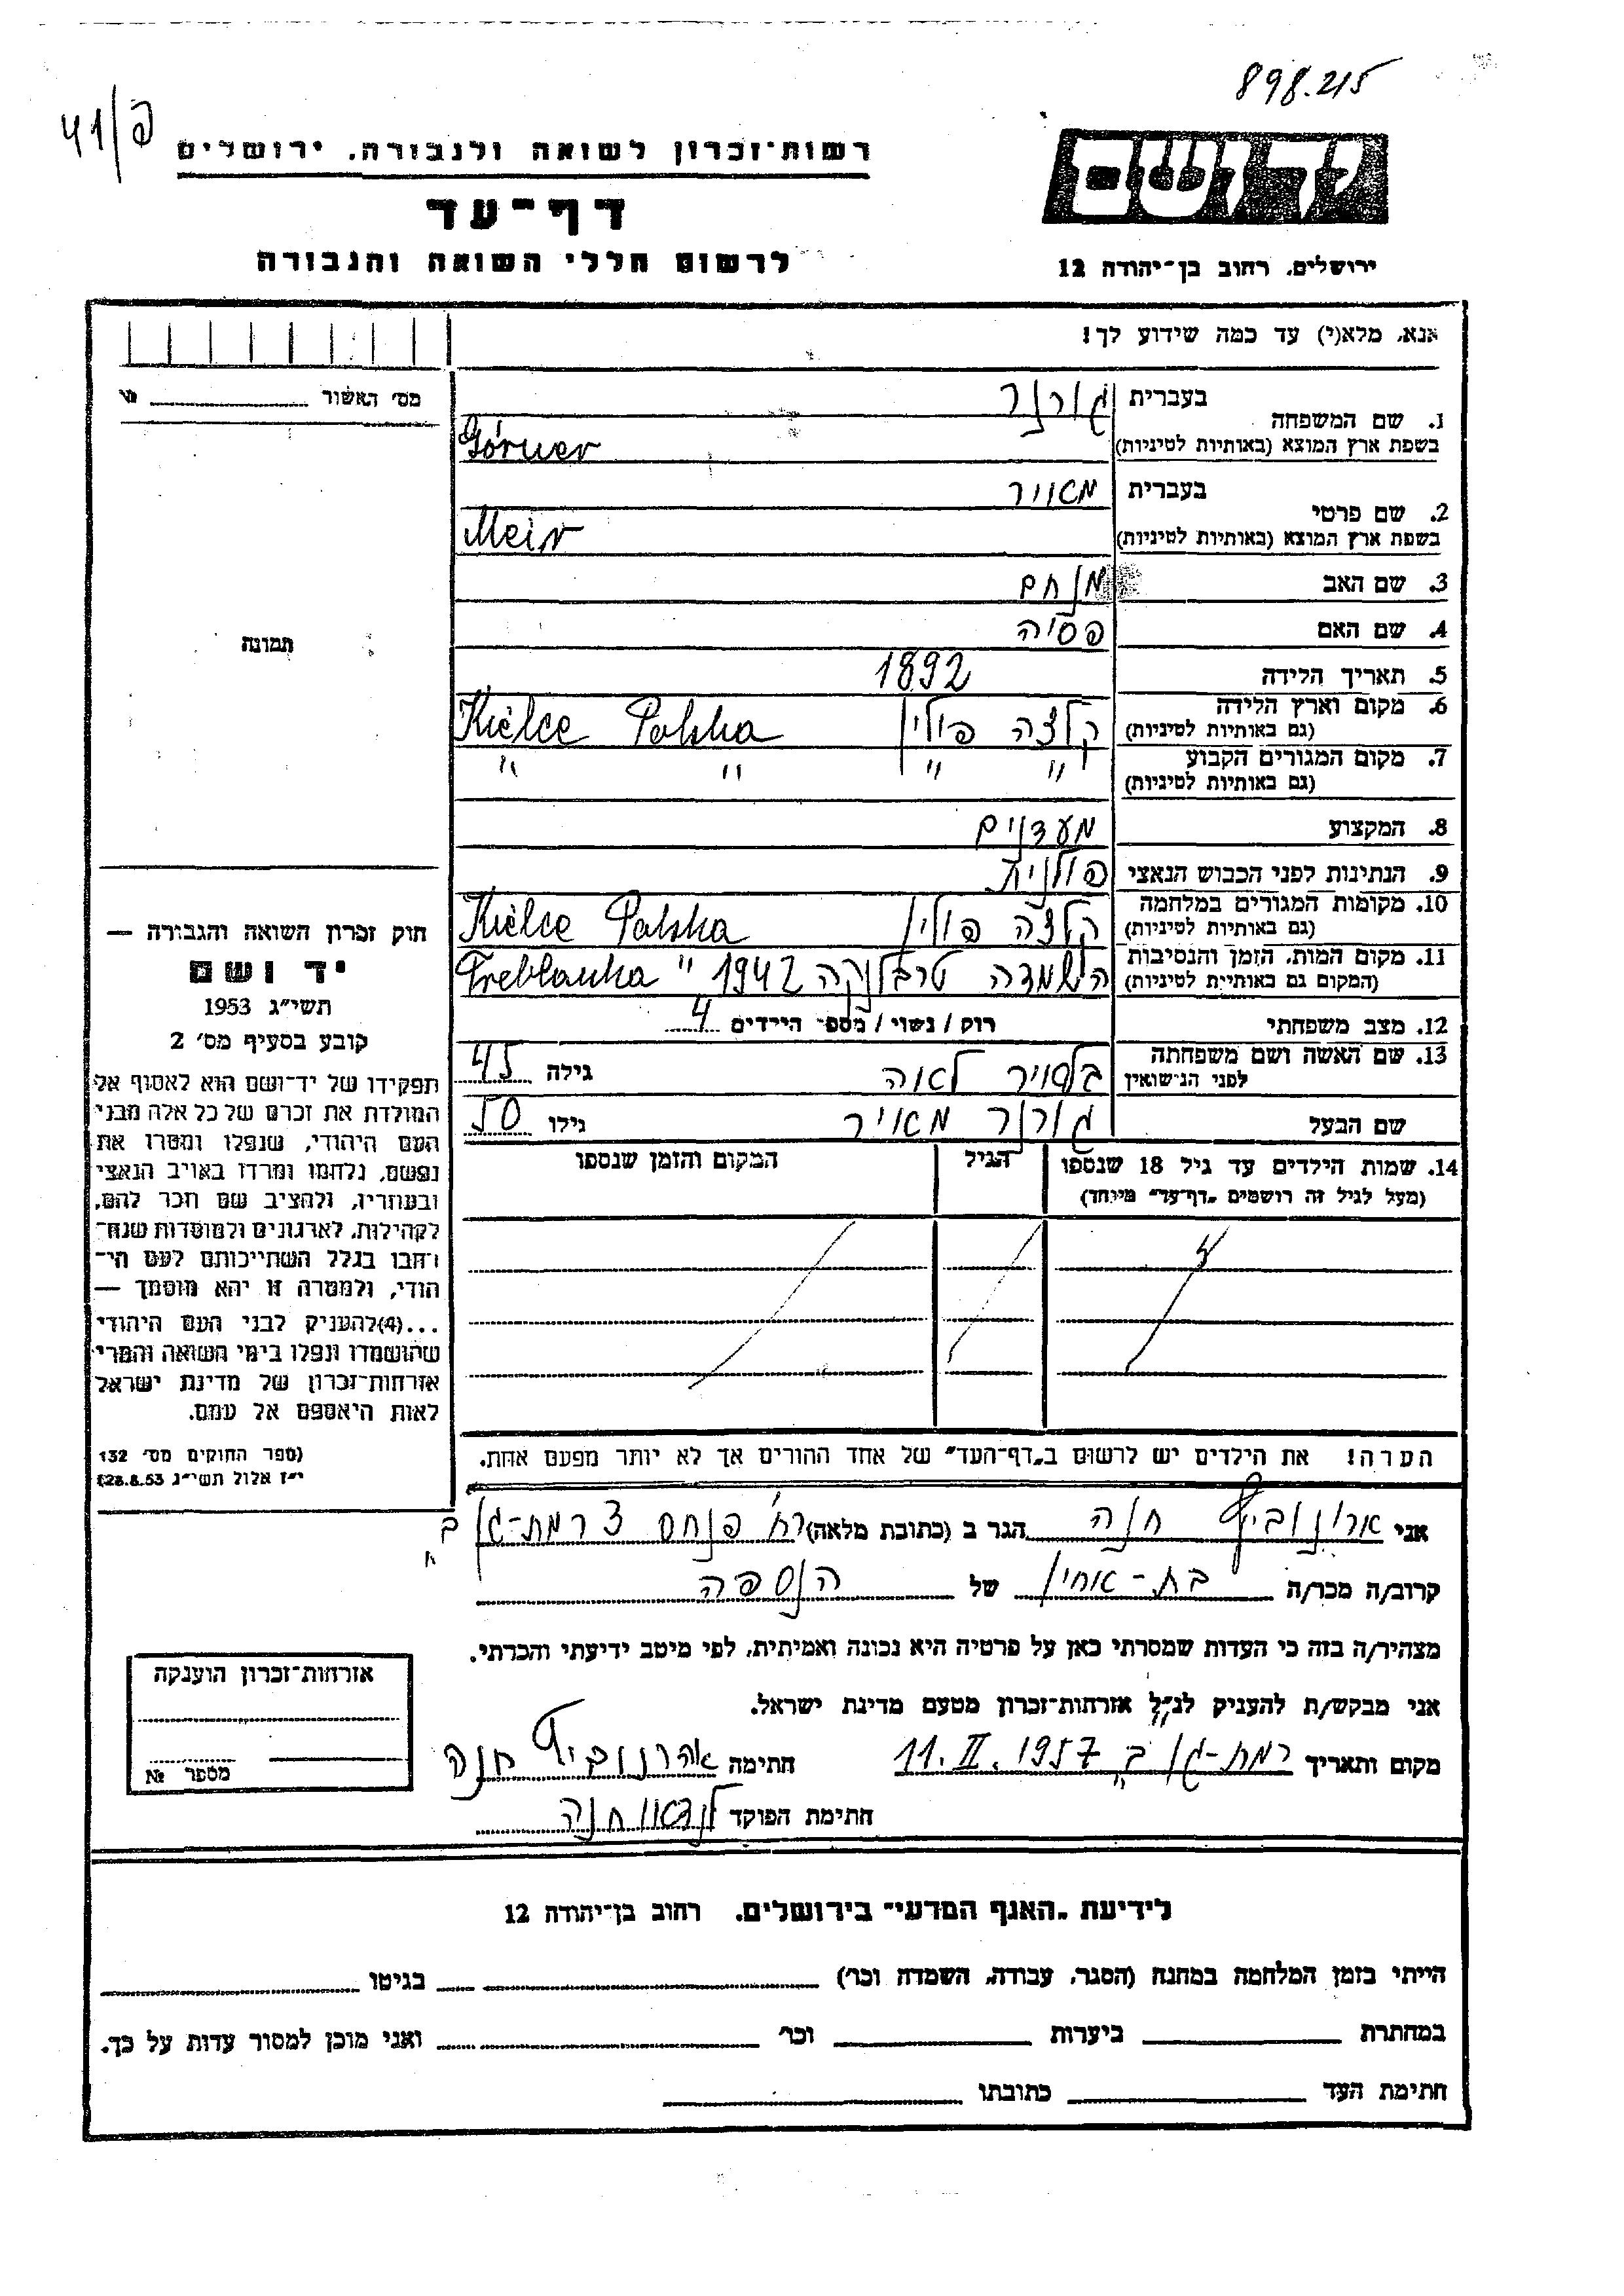 898.215
41/פ
רשות־זכרון לשואה ולגבורה, ירושלים
דף־עד
לרשום חללי השואה והגבורה
יד ושם
ירושלים, רחוב בן־יהודה 12
אנא, מלא(י) עד כמה שידוע לך!
מס׳ האשור №
תמונה
1. שם המשפחה בעברית גורנר
בשפת ארץ המוצא (באותיות לטיניות) Górner
2. שם פרטי בעברית מאיר
בשפת ארץ המוצא (באותיות לטיניות) Meir
3. שם האב מנחם
4. שם האם פסיה
5. תאריך הלידה 1892
6. מקום וארץ הלידה (גם באותיות לטיניות) קלצה פולין Kielce Polska
7. מקום המגורים הקבוע (גם באותיות לטיניות) " " " "
8. המקצוע מעדנים
9. הנתינות לפני הכבוש הנאצי פולנית
10. מקומות המגורים במלחמה (גם באותיות לטיניות) קלצה פולין Kielce Polska
11. מקום המות, הזמן והנסיבות (המקום גם באותיות לטיניות) השמדה טרבלנקה 1942 " Treblanka
12. מצב משפחתי רוק / נשוי / מספר הילדים 4
13. שם האשה ושם משפחתה לפני הנישואין לאה גילה 45
שם הבעל גורנר מאיר גילו 50
14. שמות הילדים עד גיל 18 שנספו הגיל המקום והזמן שנספו
(מעל לגיל זה רושמים „דף־עד" מיוחד)
4
הערה! את הילדים יש לרשום ב„דף־העד" של אחד ההורים אך לא יותר מפעם אחת.
חוק זכרון השואה והגבורה —
יד ושם
תשי״ג 1953
קובע בסעיף מס׳ 2
תפקידו של יד־ושם הוא לאסוף אל
המולדת את זכרם של כל אלה מבני
העם היהודי, שנפלו ומסרו את
נפשם, נלחמו ומרדו באויב הנאצי
ובעוזריו, ולהציב שם וזכר להם,
לקהילות, לארגונים ולמוסדות שנח־
רבו בגלל השתייכותם לעם הי־
הודי, ולמטרה זו יהא מוסמך —
...(4)להעניק לבני העם היהודי
שהושמדו ונפלו בימי השואה והמרי
אזרחות־זכרון של מדינת ישראל
לאות היאספם אל עמם.
(ספר החוקים מס׳ 132
י״ז אלול תשי״ג 28.8.53)
אני ארונוביץ חנה הגר ב (כתובת מלאה) רח׳ פנחס 3 רמת-גן ב"
קרוב/ה מכר/ה בת-אחין של הנספה
מצהיר/ה בזה כי העדות שמסרתי כאן על פרטיה היא נכונה ואמיתית, לפי מיטב ידיעתי והכרתי.
אני מבקש/ת להעניק לנ״ל אזרחות־זכרון מטעם מדינת ישראל.
מקום ותאריך רמת-גן ב" 11.II.1957 חתימה אהרנוביץ חנה
חתימת הפוקד לנדאו חנה
אזרחות־זכרון הוענקה
מספר №
לידיעת „האגף המדעי" בירושלים, רחוב בן־יהודה 12
הייתי בזמן המלחמה במחנה (הסגר, עבודה, השמדה וכו׳) בגיטו
במחתרת ביערות וכו׳ ואני מוכן למסור עדות על כך.
חתימת העד כתובתו